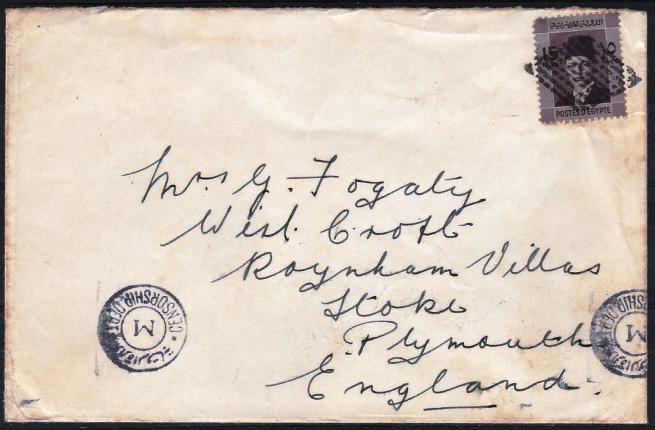 الدولة المصرية
15 ١٥
POSTES D'EGYPTE
Mrs G. Fogaty
West Croft
Roynham Villas
Stoke
Plymouth
England.
CENSORSHIP DEPT
M
CENSORSHIP DEPT
M